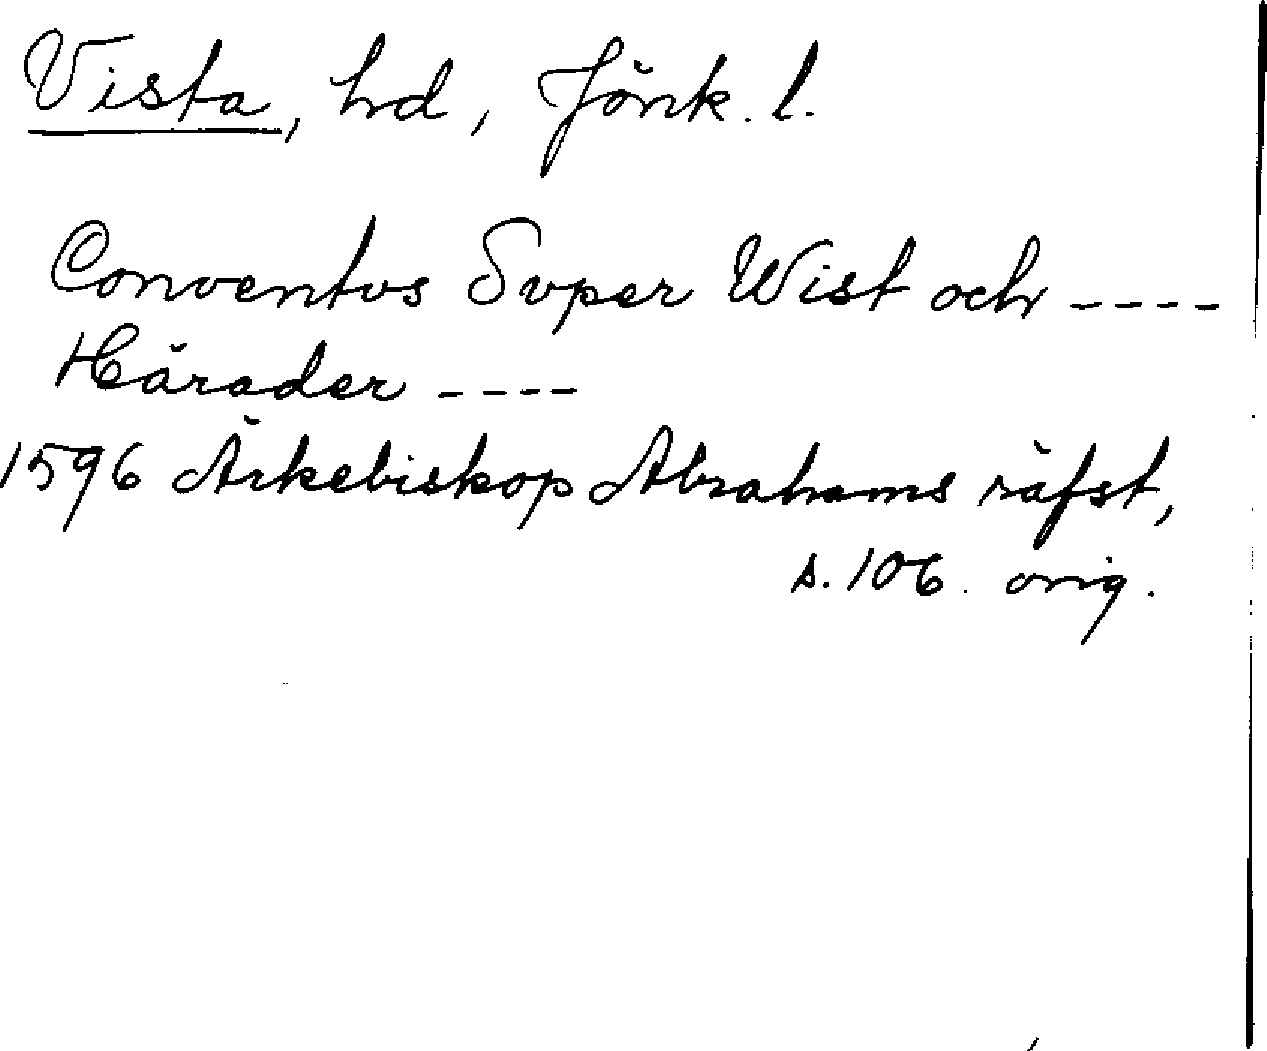 Vista, hd, Jönk. l.
Conventvs Svper Wist och ----
Härader ----
1596 Ärkebiskop Abrahams räfst,
s. 106. orig.